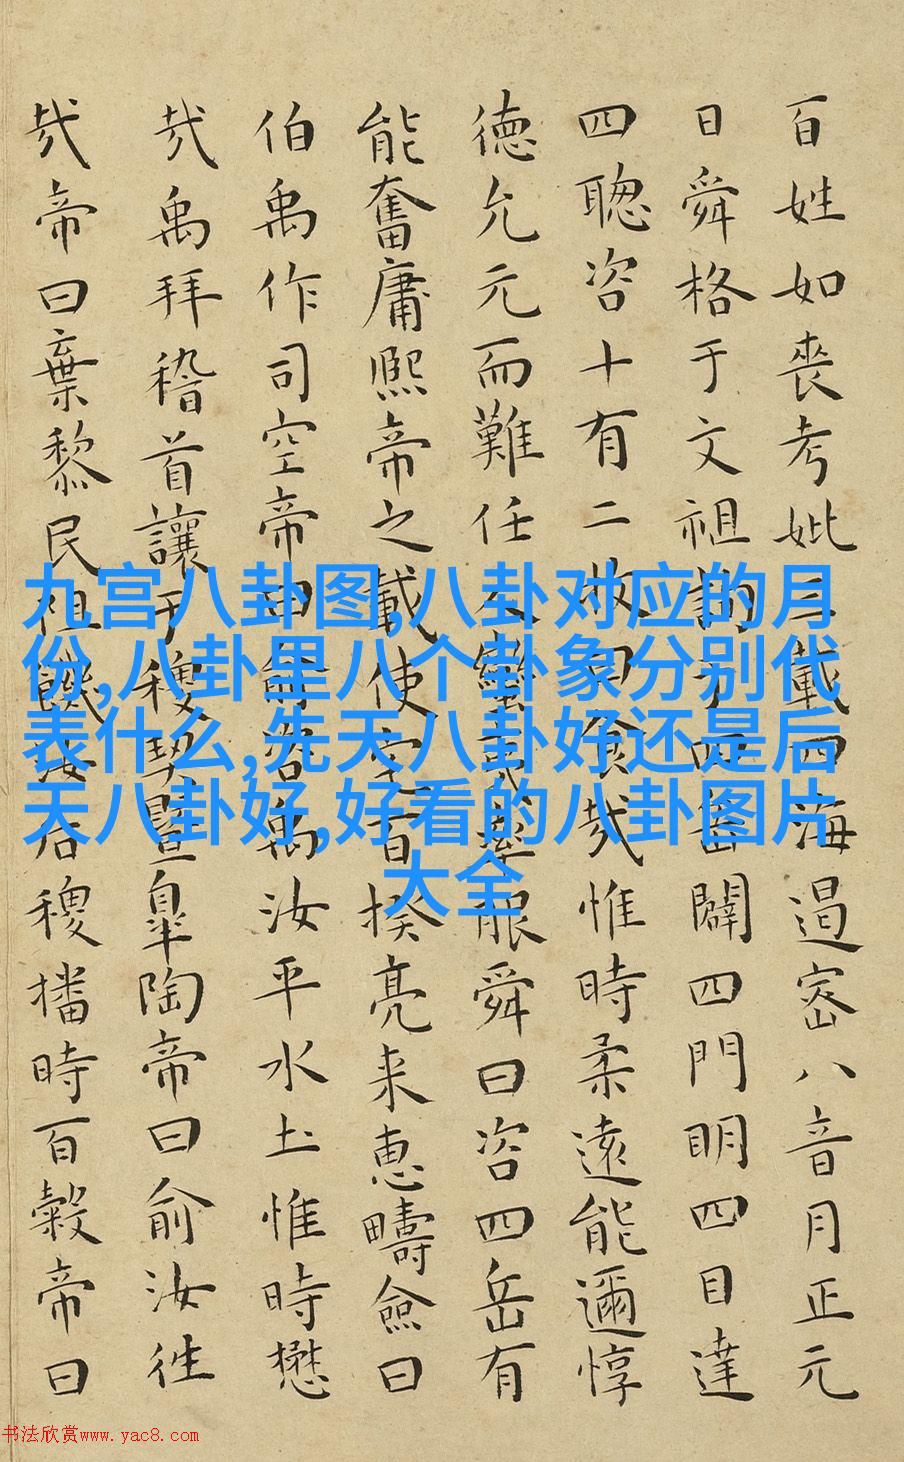 百姓如喪考妣三載四海遏密八音月正元
日舜格于文祖詢于四岳闢四門明四目達
四聦咨十有二牧曰食哉惟時柔遠能邇惇
徳允元而難任人蠻夷率服舜曰咨四岳有
能奮庸熙帝之載使宅百揆亮来惠疇僉曰
伯禹作司空帝曰俞咨禹汝平水土惟時懋
哉禹拜稽首讓于稷契暨皐陶帝曰俞汝往
哉帝曰棄黎民阻饑汝后稷播時百穀帝曰
九宫八卦图,八卦对应的月
份,八卦里八个卦象分别代
表什么,先天八卦好还是后
天八卦好,好看的八卦图片
大全
书法欣赏www.yac8.com